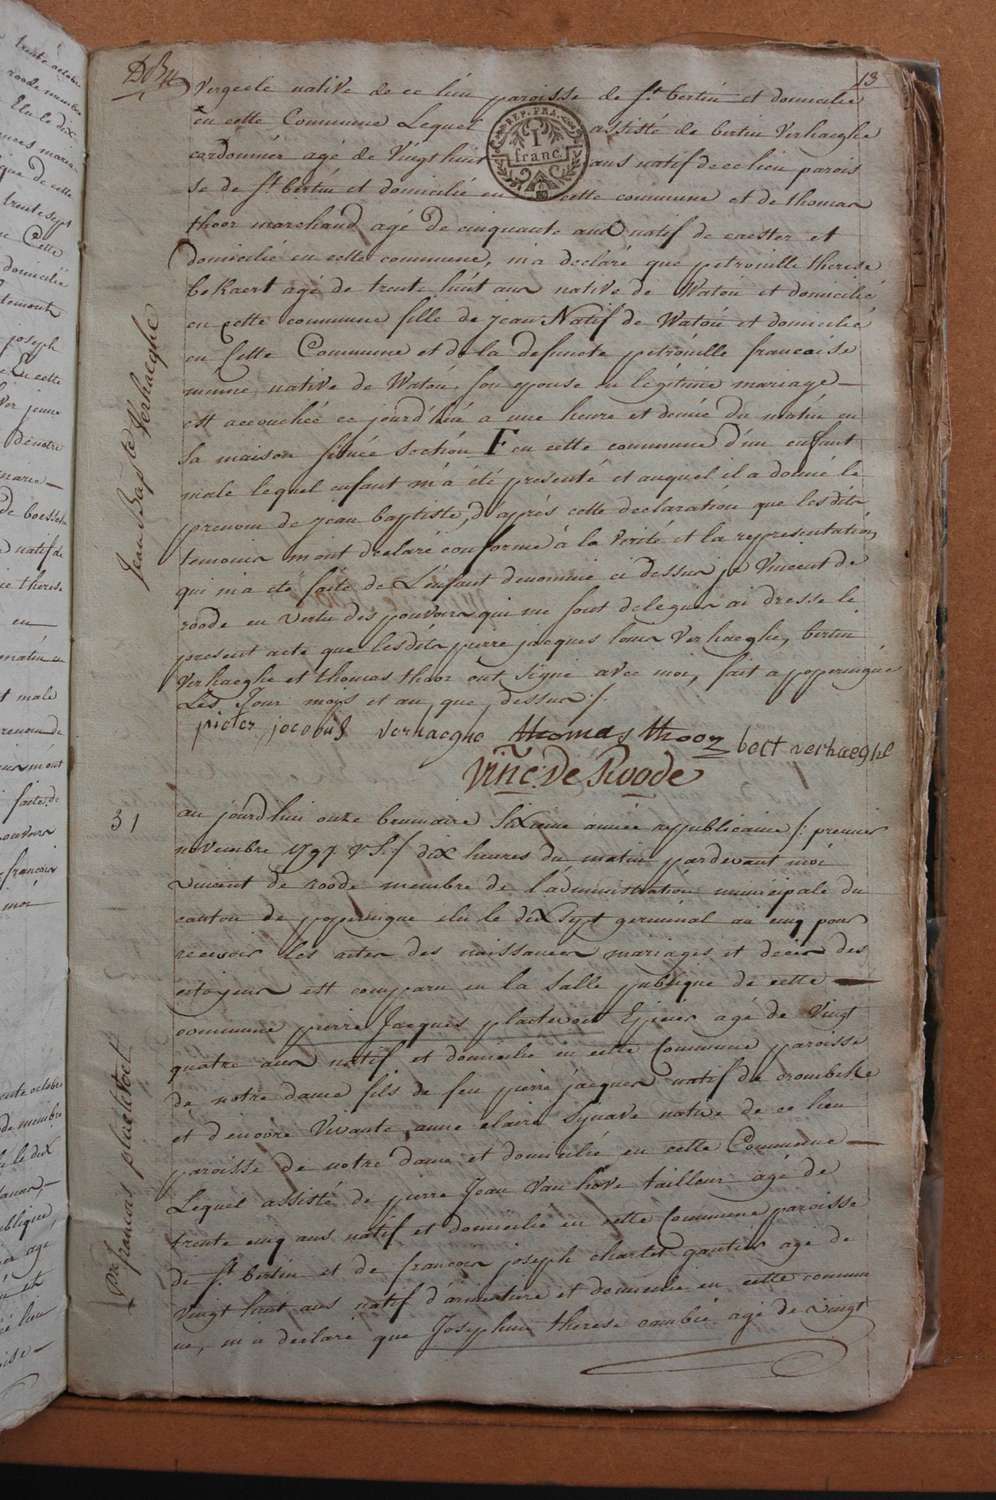 13
Vergeele native de ce lieu paroisse de St bertin et domicilie
en cette Commune Lequel assisté de bertin Verhaeghe
cordonnier agé de Vingt huit ans natif de ce lieu parois
REP. FRA.
1
franc
se de St bertin et domicilié en cette commune et de thomas
thoor marchand agé de cinquante ans natif de caester et
domicilié en cette commune, m'a declaré que petronille therese
beKaert agé de trente huit ans native de Watou et domicilié
en cette commune fille de jean Natif de Watou et domicilié
en Cette Commune et de la defuncte petronille francoise
native de Watou, son epouse en légitime mariage —
est accouchée ce jourd'hui a une heure et demie du matin en
sa maison située section F en cette commune d'un enfant
male lequel enfant m'a été présenté et auquel il a donné le
prenom de jean baptiste, d'après cette declaration que lesdits
temoins m'ont declaré conforme à la Vérité et la representation
qui m'a été faite de L'enfant denommé ci dessus je Vincent de
roode en vertu des pouvoirs qui me sont delegues ai dresse le
present acte que lesdits pierre jacques louis Verhaeghe, bertin
Verhaeghe et thomas thoor ont signé avec moi, fait a poperingue
Les Jour mois et an que dessus /.
Jean Bapte Verhaeghe
pieter jacobus verhaeghe thomas thoor bert verhaeghe
Vinc: De Roode
31
au jourd'hui onze brumaire Sixieme année republicaine /: premier
novembre 1797 V S :/ dix heures du matin pardevant moi
Vincent de roode membre de l'administration municipale du
canton de poperingue elu le dix Sept germinal an cinq pour
recevoir les actes des naissances mariages et deces des
citoyens est comparu en la Salle publique de cette —
commune pierre Jacques plaetevoet Epicier agé de Vingt
quatre ans natif et domicilié en cette Commune paroisse
de notre dame fils de feu pierre jacques natif de crombeke
et d'encore Vivante anne claire Synave native de ce lieu
paroisse de notre dame et domicilié en cette Commune —
Lequel assisté de pierre Jean Van hove tailleur agé de
trente cinq ans natif et domicilié en cette Commune paroisse
de St bertin et de francois joseph charlet gantier agé de
Vingt huit ans natif d'armentiere et domicilié en cette commu
ne, m'a declaré que Josephine therese cambié agé de Vingt
francois plaetevoet